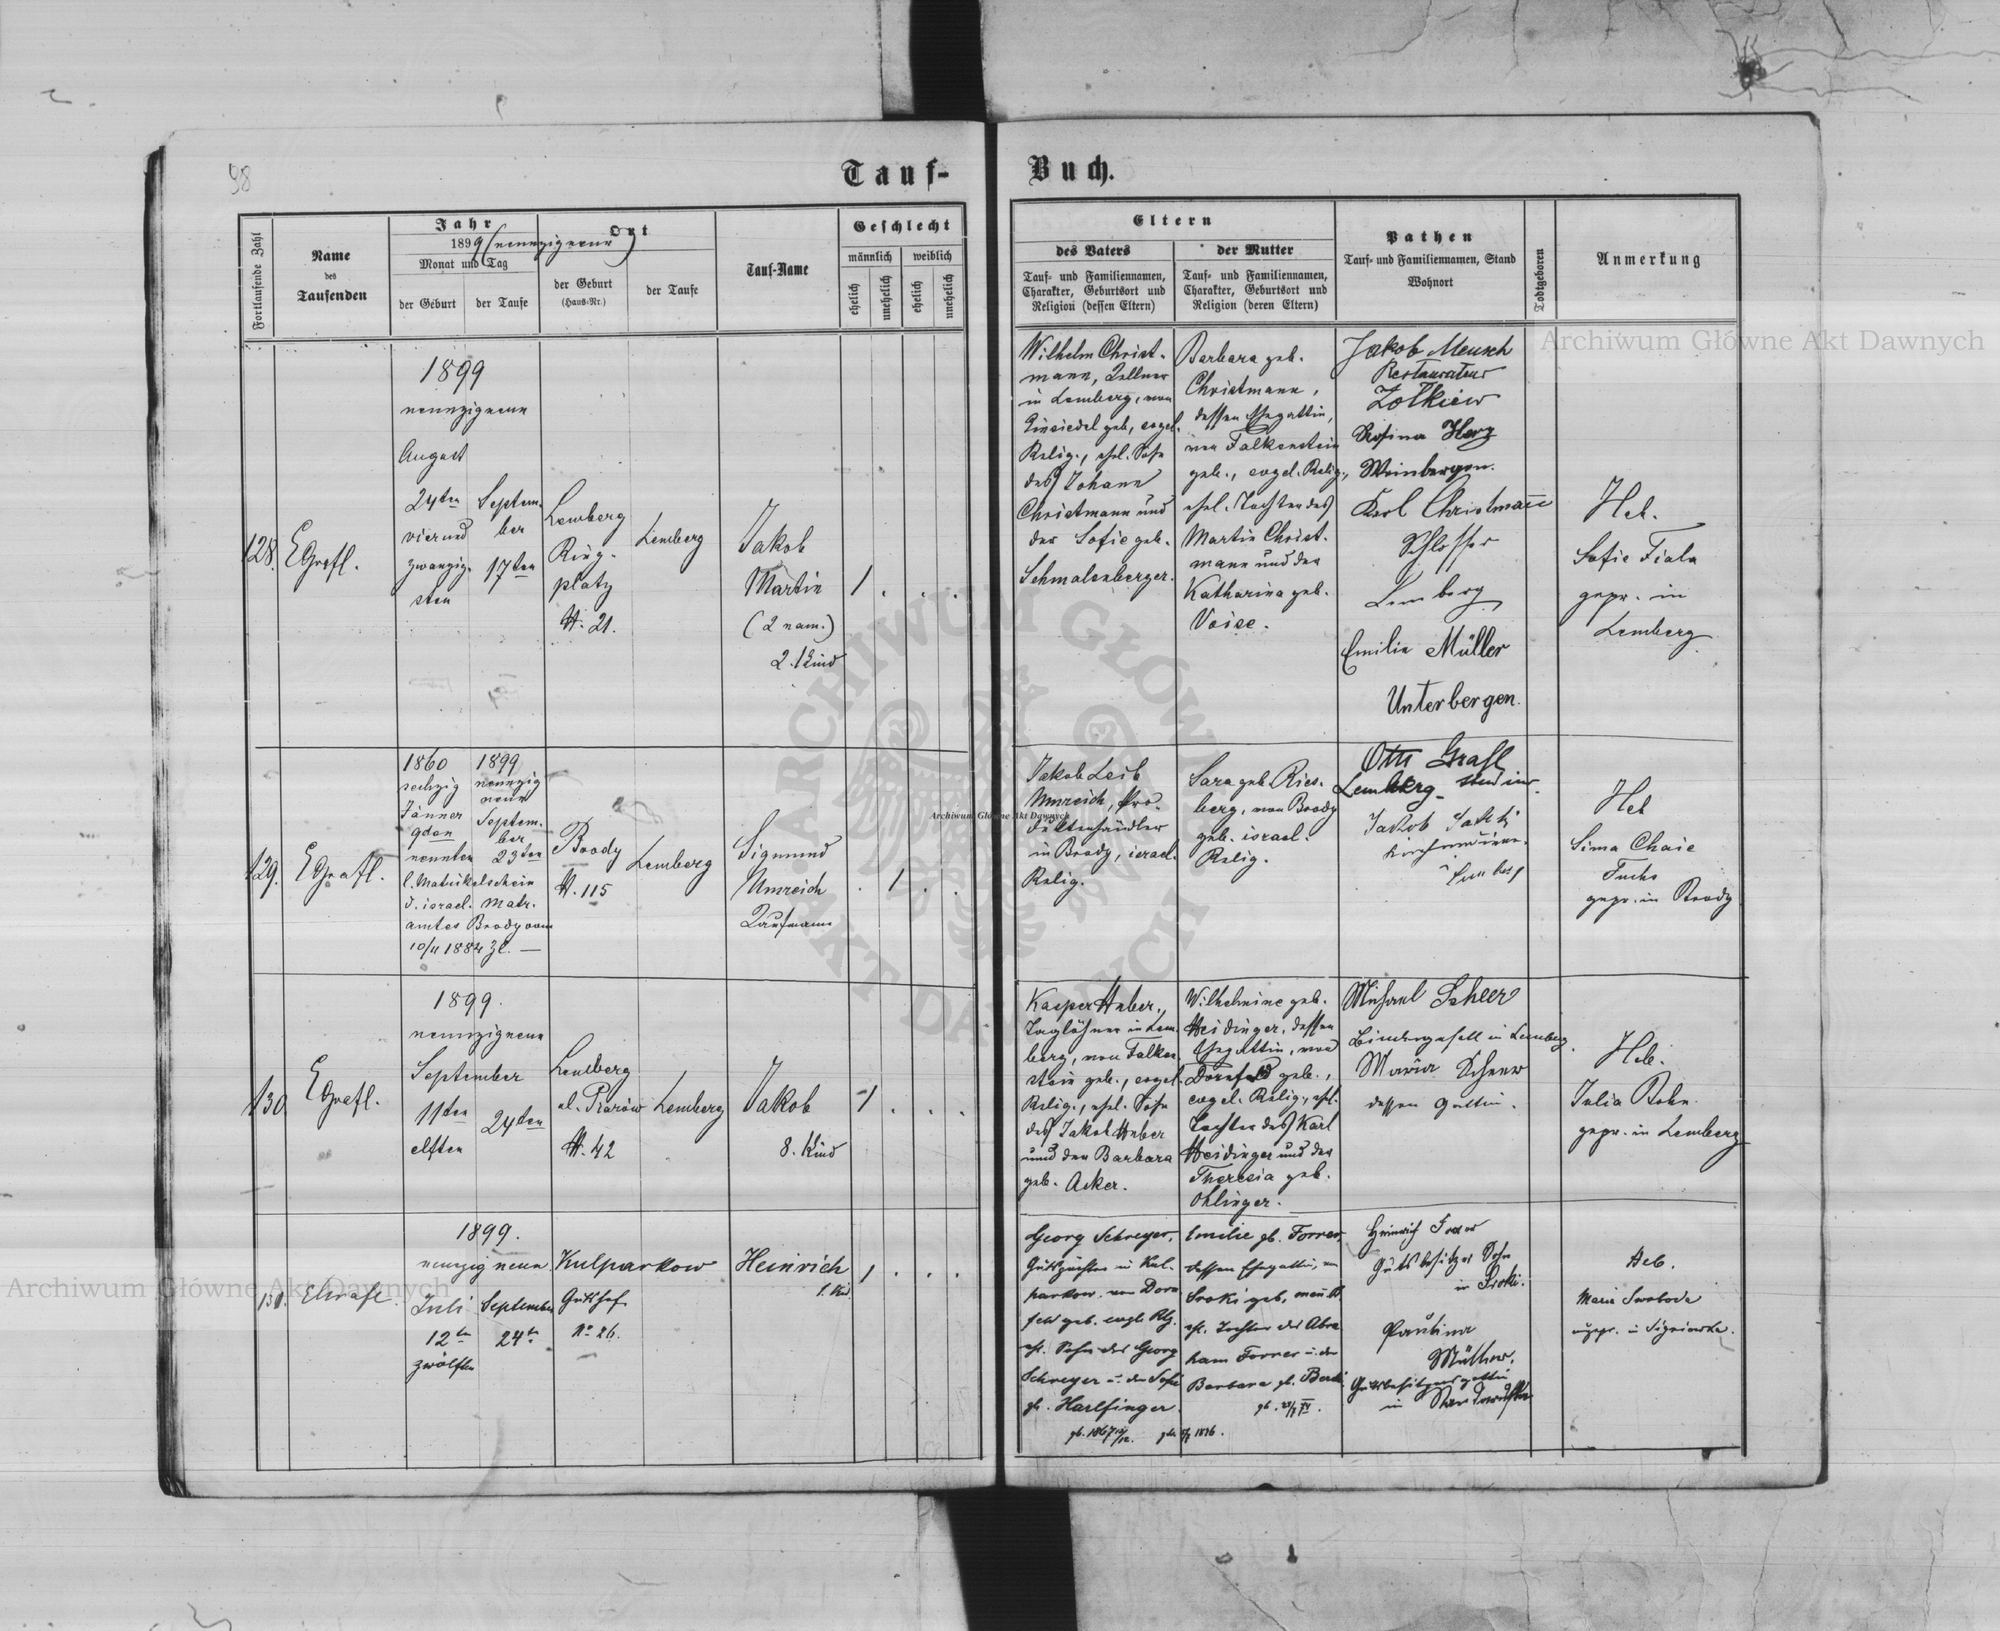 98
Tauf-
Buch.
Fortlaufende Zahl
Name
des
Taufenden
Jahr
1899 (neunzigneun)
Monat und Tag
der Geburt
der Taufe
Ort
der Geburt
(Haus-Nr.)
der Taufe
Tauf-Name
Geschlecht
männlich
weiblich
ehelich
unehelich
ehelich
unehelich
Eltern
des Vaters
Tauf- und Familiennamen,
Charakter, Geburtsort und
Religion (dessen Eltern)
der Mutter
Tauf- und Familiennamen,
Charakter, Geburtsort und
Religion (deren Eltern)
Pathen
Tauf- und Familiennamen, Stand
Wohnort
Todtgeboren
Anmerkung
128.
EGrafl.
1899
neunzigneun
August
24ten
vierund
zwanzig-
sten
Septem-
ber
17ten
Lemberg
Ring-
platz
N. 21.
Lemberg
Jakob
Martin
(2 nam.)
2. Kind
1 . . .
Wilhelm Christ-
mann, Kellner
in Lemberg, von
Einsiedel geb., evgel.
Relig., ehel. Sohn
des Johann
Christmann und
der Sofie geb.
Schmalenberger.
Barbara geb.
Christmann,
dessen Ehegattin,
von Falkenstein
geb., evgel. Relig.,
ehel. Tochter des
Martin Christ-
mann und der
Katharina geb.
Voise.
Jakob Mensch
Restaurateur
Zolkiew
Rosina Herz
Weinbergen.
Karl Christmann
Schlosser
Lemberg
Emilie Müller
Unterbergen.
Heb.
Sofie Fiala
gepr. in
Lemberg
129.
EGrafl.
1860
sechzig
Jänner
9den
neunten
1899
neunzig
neun
Septem-
ber
23ten
l. Matrikelschein
d. israel. Matr.
amtes Brody vom
10/11 1884 Zl. —
Brody
N. 115
Lemberg
Sigmund
Umreich
Kaufmann
. 1 . .
Jakob Leib
Umreich, Pro-
duktenhändler
in Brody, israel.
Relig.
Sara geb. Ries-
berg, von Brody
geb. israel.
Relig.
Otto Grafl
Lemberg
Jakob
Heb
Sima Chaie
Fuchs
gepr. in Brody
130
EGrafl.
1899.
neunzigneun
September
11ten
elften
24ten
Lemberg
N. 42
Lemberg
Jakob
8. Kind
1 . . .
Kasper Huber,
Taglöhner in Lem-
berg, von Falken-
stein geb., evgel.
Relig., ehel. Sohn
des Jakob Huber
und der Barbara
geb. Acker.
Wilhelmine geb.
Heidinger, dessen
Ehegattin, von
Dornfeld geb.,
evgel. Relig., ehel.
Tochter des Karl
Heidinger und der
Theresia geb.
Ohlinger.
Michael Scheer
Bindergesell in Lemberg.
Maria Scheer
dessen Gattin.
Heb.
Julia Bohn
gepr. in Lemberg
131.
EGrafl.
1899.
neunzig neun
Juli
12te
zwölften
September
24te
Kulparkow
Gutshof
No 26.
Heinrich
1. Kind
1 . . .
Georg Schreyer,
Gutspächter in Kul-
parkow, von Dorn-
feld geb. evgl. Rlg.
eh. Sohn des Georg
Schreyer u. der Sofie
gb. Harlfinger.
Emilie gb. Forrer,
dessen Ehegattin, von
Sroki geb,
eh. Tochter des Abra
ham Forrer u. der
Barbara gb.
Heinrich Forrer
Gutsbesitzer Sohn
in Sroki.
Paulina
Müller,
Gutsbesitzersgattin
in
Heb.
Marie Swoboda
Archiwum Główne Akt Dawnych
Archiwum Główne Akt Dawnych
Archiwum Główne Akt Dawnych
ARCHIWUM GŁÓWNE AKT DAWNYCH